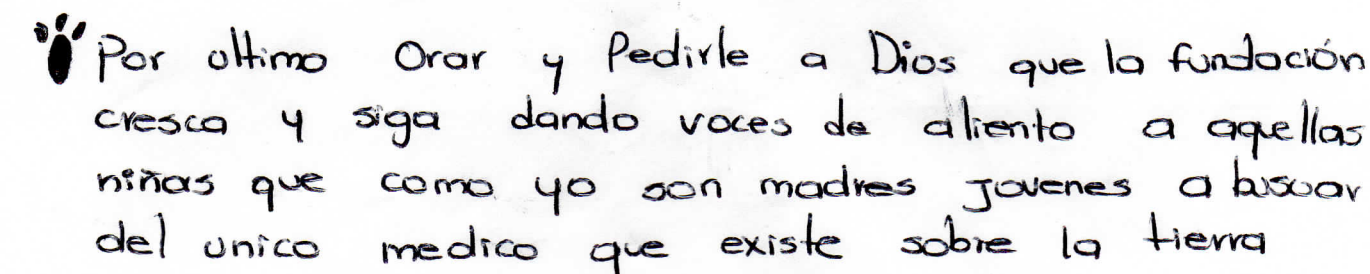 Por ultimo Orar y Pedirle a Dios que la fundación
cresca y siga dando voces de aliento a aquellas
niñas que como yo son madres jovenes a buscar
del unico medico que existe sobre la tierra